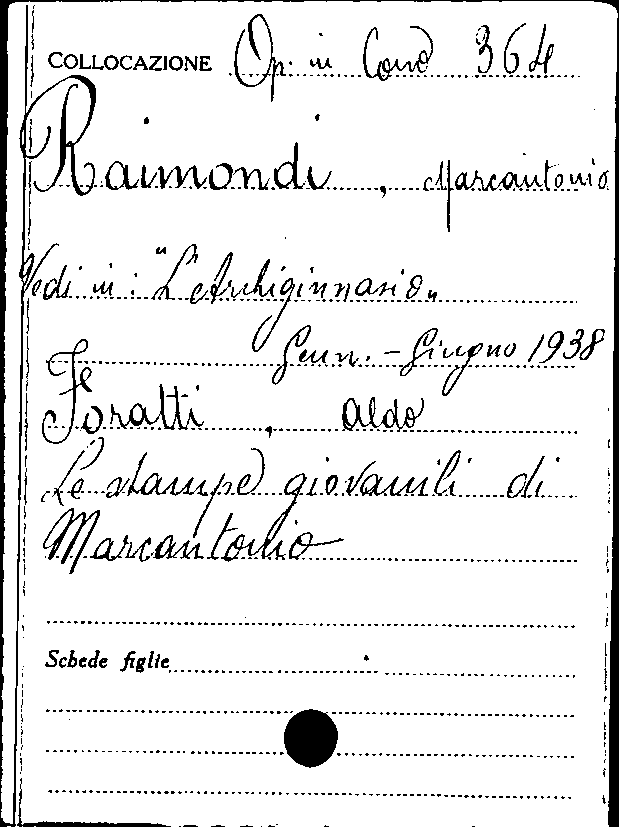 COLLOCAZIONE Op. in Cons 364
Raimondi, Marcantonio
Vedi in: "L'Archiginnasio"
Genn. - Giugno 1938
Foratti, Aldo
Le stampe giovanili di
Marcantonio
Schede figlie